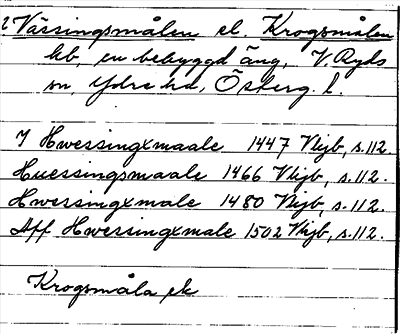 2 Vässingsmålen el. Krogsmålen
hb, en bebyggd äng, V. Ryds
sn, Ydre hd, Österg. l.
I Hwessingxmaale 1447 Vkjb, s. 112.
Huessingsmaale 1466 Vkjb, s. 112.
Hwessingxmale 1480 Vkjb, s. 112.
Aff Hwessingxmale 1502 Vkjb, s. 112.
Krogsmåla ek